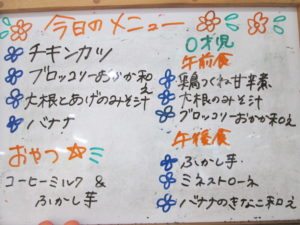 今日のメニュー
チキンカツ
ブロッコリーおかか和え
大根とあげのみそ汁
バナナ
おやつ
コーヒーミルク &
ふかし芋
0才児
午前食
鶏つくね甘辛煮
大根のみそ汁
ブロッコリーおかか和え
午後食
ふかし芋
ミネストローネ
バナナのきなこ和え